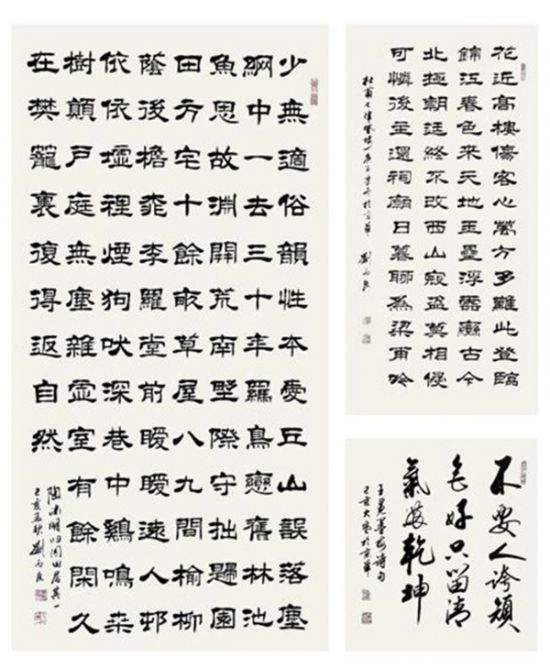 花近高樓傷客心萬方多難此登臨
錦江春色來天地玉壘浮雲變古今
北極朝廷終不改西山寇盜莫相侵
可憐後主還祠廟日暮聊為梁甫吟
杜甫七律登樓一首於京華 劉丙良
少無適俗韻性本愛丘山誤落塵
網中一去三十年羈鳥戀舊林池
魚思故淵開荒南墅際守拙歸園
田方宅十餘畝草屋八九間榆柳
蔭後檐桃李羅堂前曖曖遠人邨
依依墟裡煙狗吠深巷中鷄鳴桑
樹顛戶庭無塵雜虛室有餘閑久
在樊籠裏復得返自然
陶淵明歸園田居其一
己亥孟秋劉丙良
不要人誇顏
色好只留清
氣滿乾坤
王冕墨梅詩句
己亥大寒於京華